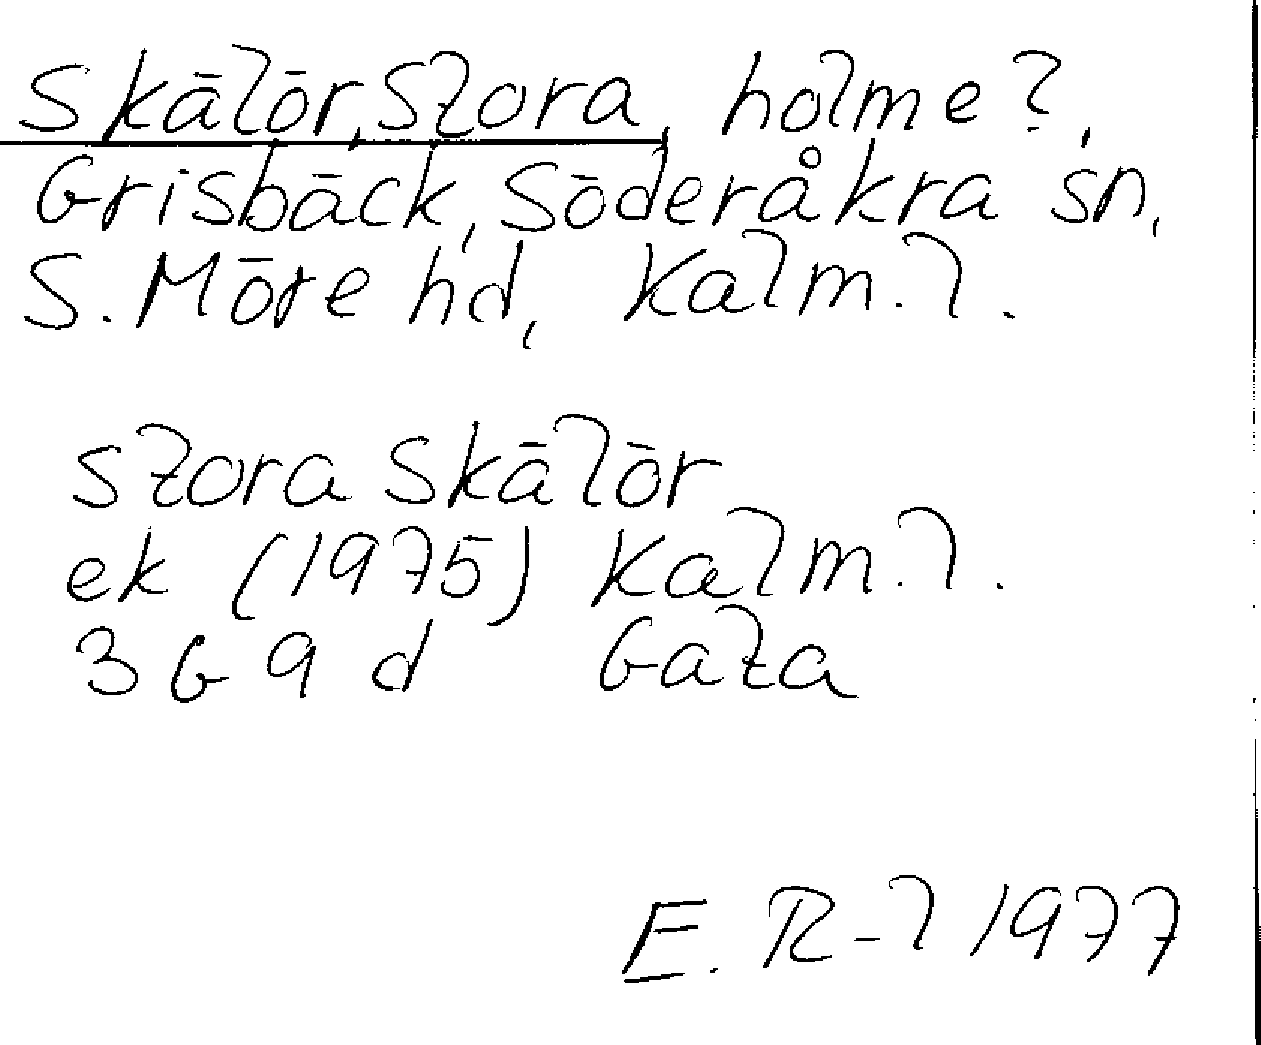 Skälör, Stora, holme?,
Grisbäck, Söderåkra sn,
S. Möre hd, Kalm. l.
Stora Skälör
ek (1975) Kalm. l.
3G 9d Gata
E. R-l 1977